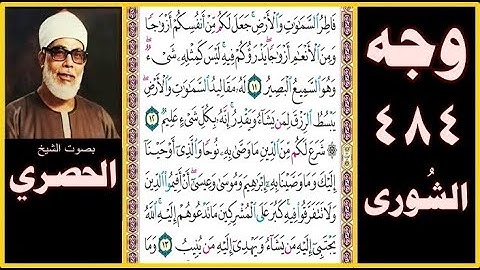 فَاطِرُ السَّمَٰوَٰتِ وَالْأَرْضِ ۚ جَعَلَ لَكُم مِّنْ أَنفُسِكُمْ أَزْوَٰجًا
وَمِنَ الْأَنْعَٰمِ أَزْوَٰجًا ۖ يَذْرَؤُكُمْ فِيهِ ۚ لَيْسَ كَمِثْلِهِۦ شَىْءٌ ۖ
وَهُوَ السَّمِيعُ الْبَصِيرُ ١١ لَهُۥ مَقَالِيدُ السَّمَٰوَٰتِ وَالْأَرْضِ ۖ
يَبْسُطُ الرِّزْقَ لِمَن يَشَآءُ وَيَقْدِرُ ۚ إِنَّهُۥ بِكُلِّ شَىْءٍ عَلِيمٌ ١٢
شَرَعَ لَكُم مِّنَ الدِّينِ مَا وَصَّىٰ بِهِۦ نُوحًا وَالَّذِىٓ أَوْحَيْنَآ
إِلَيْكَ وَمَا وَصَّيْنَا بِهِۦٓ إِبْرَٰهِيمَ وَمُوسَىٰ وَعِيسَىٰٓ ۖ أَنْ أَقِيمُوا۟ الدِّينَ
وَلَا تَتَفَرَّقُوا۟ فِيهِ ۚ كَبُرَ عَلَى الْمُشْرِكِينَ مَا تَدْعُوهُمْ إِلَيْهِ ۚ اللَّهُ
يَجْتَبِىٓ إِلَيْهِ مَن يَشَآءُ وَيَهْدِىٓ إِلَيْهِ مَن يُنِيبُ ١٣ وَمَا
وجه
٤٨٤
الشُورى
بصوت الشيخ
الحصري